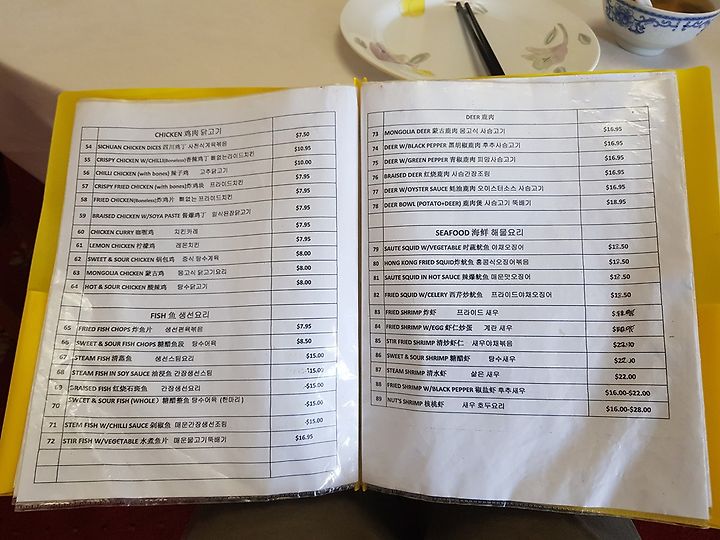 CHICKEN 鸡肉 닭고기
54 SICHUAN CHICKEN DICES 四川鸡丁 사천식계육볶음 $7.50
55 CRISPY CHICKEN W/CHILLI(Boneless)香辣鸡丁 뼈없는라이드치킨 $10.95
56 CHILLI CHICKEN (with bones) 辣子鸡 고추닭고기 $10.00
57 CRISPY FRIED CHICKEN (with bones)炸鸡块 프라이드치킨 $7.95
58 FRIED CHICKEN(Boneless)炸鸡片 뼈없는 프라이드치킨 $7.95
59 BRAISED CHICKEN W/SOYA PASTE 酱爆鸡丁 일식된장닭고기 $7.95
60 CHICKEN CURRY 咖喱鸡 치킨카레 $7.95
61 LEMON CHICKEN 柠檬鸡 레몬치킨 $7.95
62 SWEET & SOUR CHICKEN 锅包鸡 중식 탕수계육 $8.00
63 MONGOLIA CHICKEN 蒙古鸡 몽고식 닭고기요리 $8.00
64 HOT & SOUR CHICKEN 酸辣鸡 탕수닭고기 $8.00
FISH 魚 생선요리
65 FRIED FISH CHOPS 炸鱼片 생선편육볶음 $7.95
66 SWEET & SOUR FISH CHOPS 糖醋鱼段 탕수어육 $8.50
67 STEAM FISH 清蒸鱼 생선스팀요리 $15.00
68 STEAM FISH IN SOY SAUCE 油浸鱼 간장생선스팀 $15.00
69 BRAISED FISH 红烧石斑鱼 간장생선요리 $15.00
70 SWEET & SOUR FISH (WHOLE) 糖醋整鱼 탕수어육 (한마리) $15.00
71 STEM FISH W/CHILLI SAUCE 剁椒鱼 매운간장생선조림 $15.00
72 STIR FISH W/VEGETABLE 水煮鱼片 매운물고기뚝배기 $16.95
DEER 鹿肉
73 MONGOLIA DEER 蒙古鹿肉 몽고식 사슴고기 $16.95
74 DEER W/BLACK PEPPER 黑胡椒鹿肉 후추사슴고기 $16.95
75 DEER W/GREEN PEPPER 青椒鹿肉 피망사슴고기 $16.95
76 BRAISED DEER 红烧鹿肉 사슴간장조림 $16.95
77 DEER W/OYSTER SAUCE 蚝油鹿肉 오이스터소스 사슴고기 $16.95
78 DEER BOWL (POTATO+DEER) 鹿肉煲 사슴고기 뚝배기 $18.95
SEAFOOD 海鲜 해물요리
79 SAUTE SQUID W/VEGETABLE 时蔬鱿鱼 야채오징어
80 HONG KONG FRIED SQUID炸鱿鱼 홍콩식오징어볶음
81 SAUTE SQUID IN HOT SAUCE 辣爆鱿鱼 매운맛오징어
82 FRIED SQUID W/CELERY 西芹炒鱿鱼 프라이드야채오징어
83 FRIED SHRIMP 炸虾 프라이드 새우
84 FRIED SHRIMP W/EGG 虾仁炒蛋 계란 새우
85 STIR FRIED SHRIMP 清炒虾仁 새우야채볶음 $22.00
86 SWEET & SOUR SHRIMP 糖醋虾 탕수새우 $22.00
87 STEAM SHRIMP 清水虾 삶은 새우 $22.00
88 FRIED SHRIMP W/BLACK PEPPER 椒盐虾 후추새우 $16.00-$22.00
89 NUT'S SHRIMP 核桃虾 새우 호두요리 $16.00-$28.00